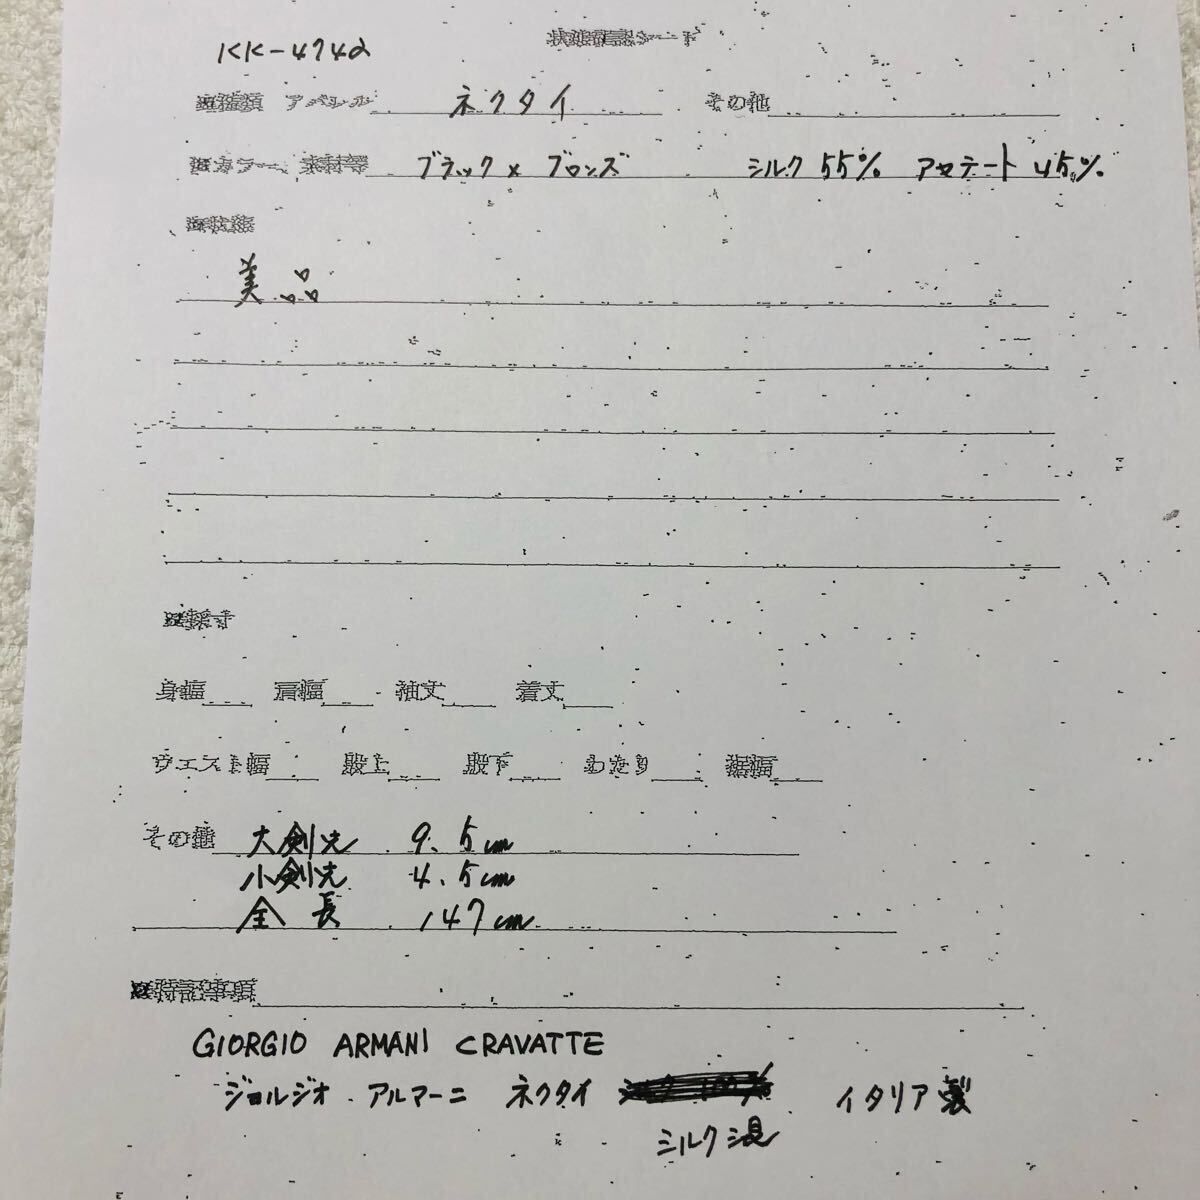 KK-4742
状態確認シート
■種類 アパレル ネクタイ その他
■カラー、素材等 ブラック×ブロンズ シルク55% アセテート45%
■状態
美品
■採寸
身幅 肩幅 袖丈 着丈
ウエスト幅 股上 股下 わたり 裾幅
その他 大剣先 9.5cm
小剣先 4.5cm
全長 147cm
■特記事項
GIORGIO ARMANI CRAVATTE
ジョルジオ・アルマーニ ネクタイ イタリア製
シルク混